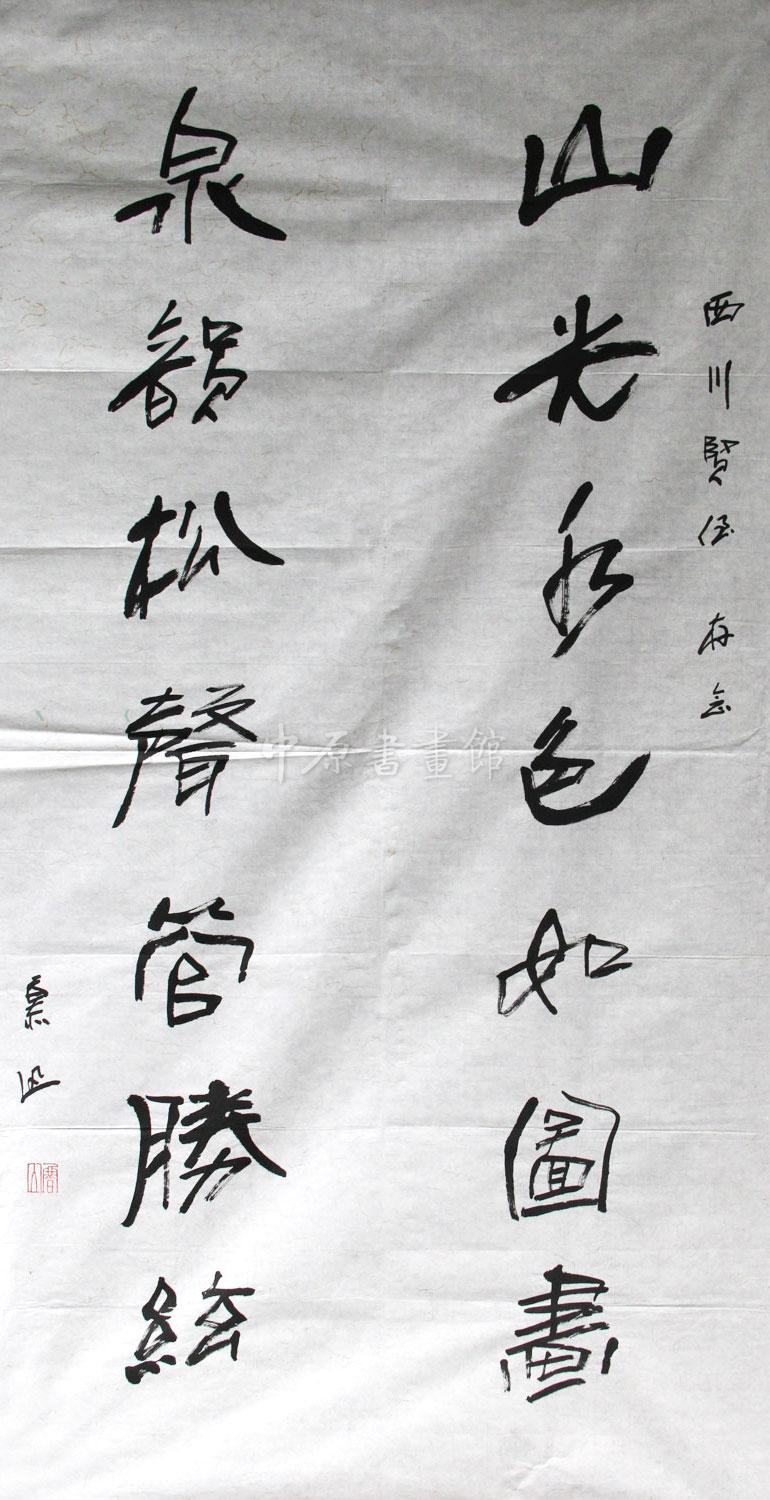 西川賢侄 存念
山光水色如圖畫
泉韻松聲管勝絃
中原書畫館